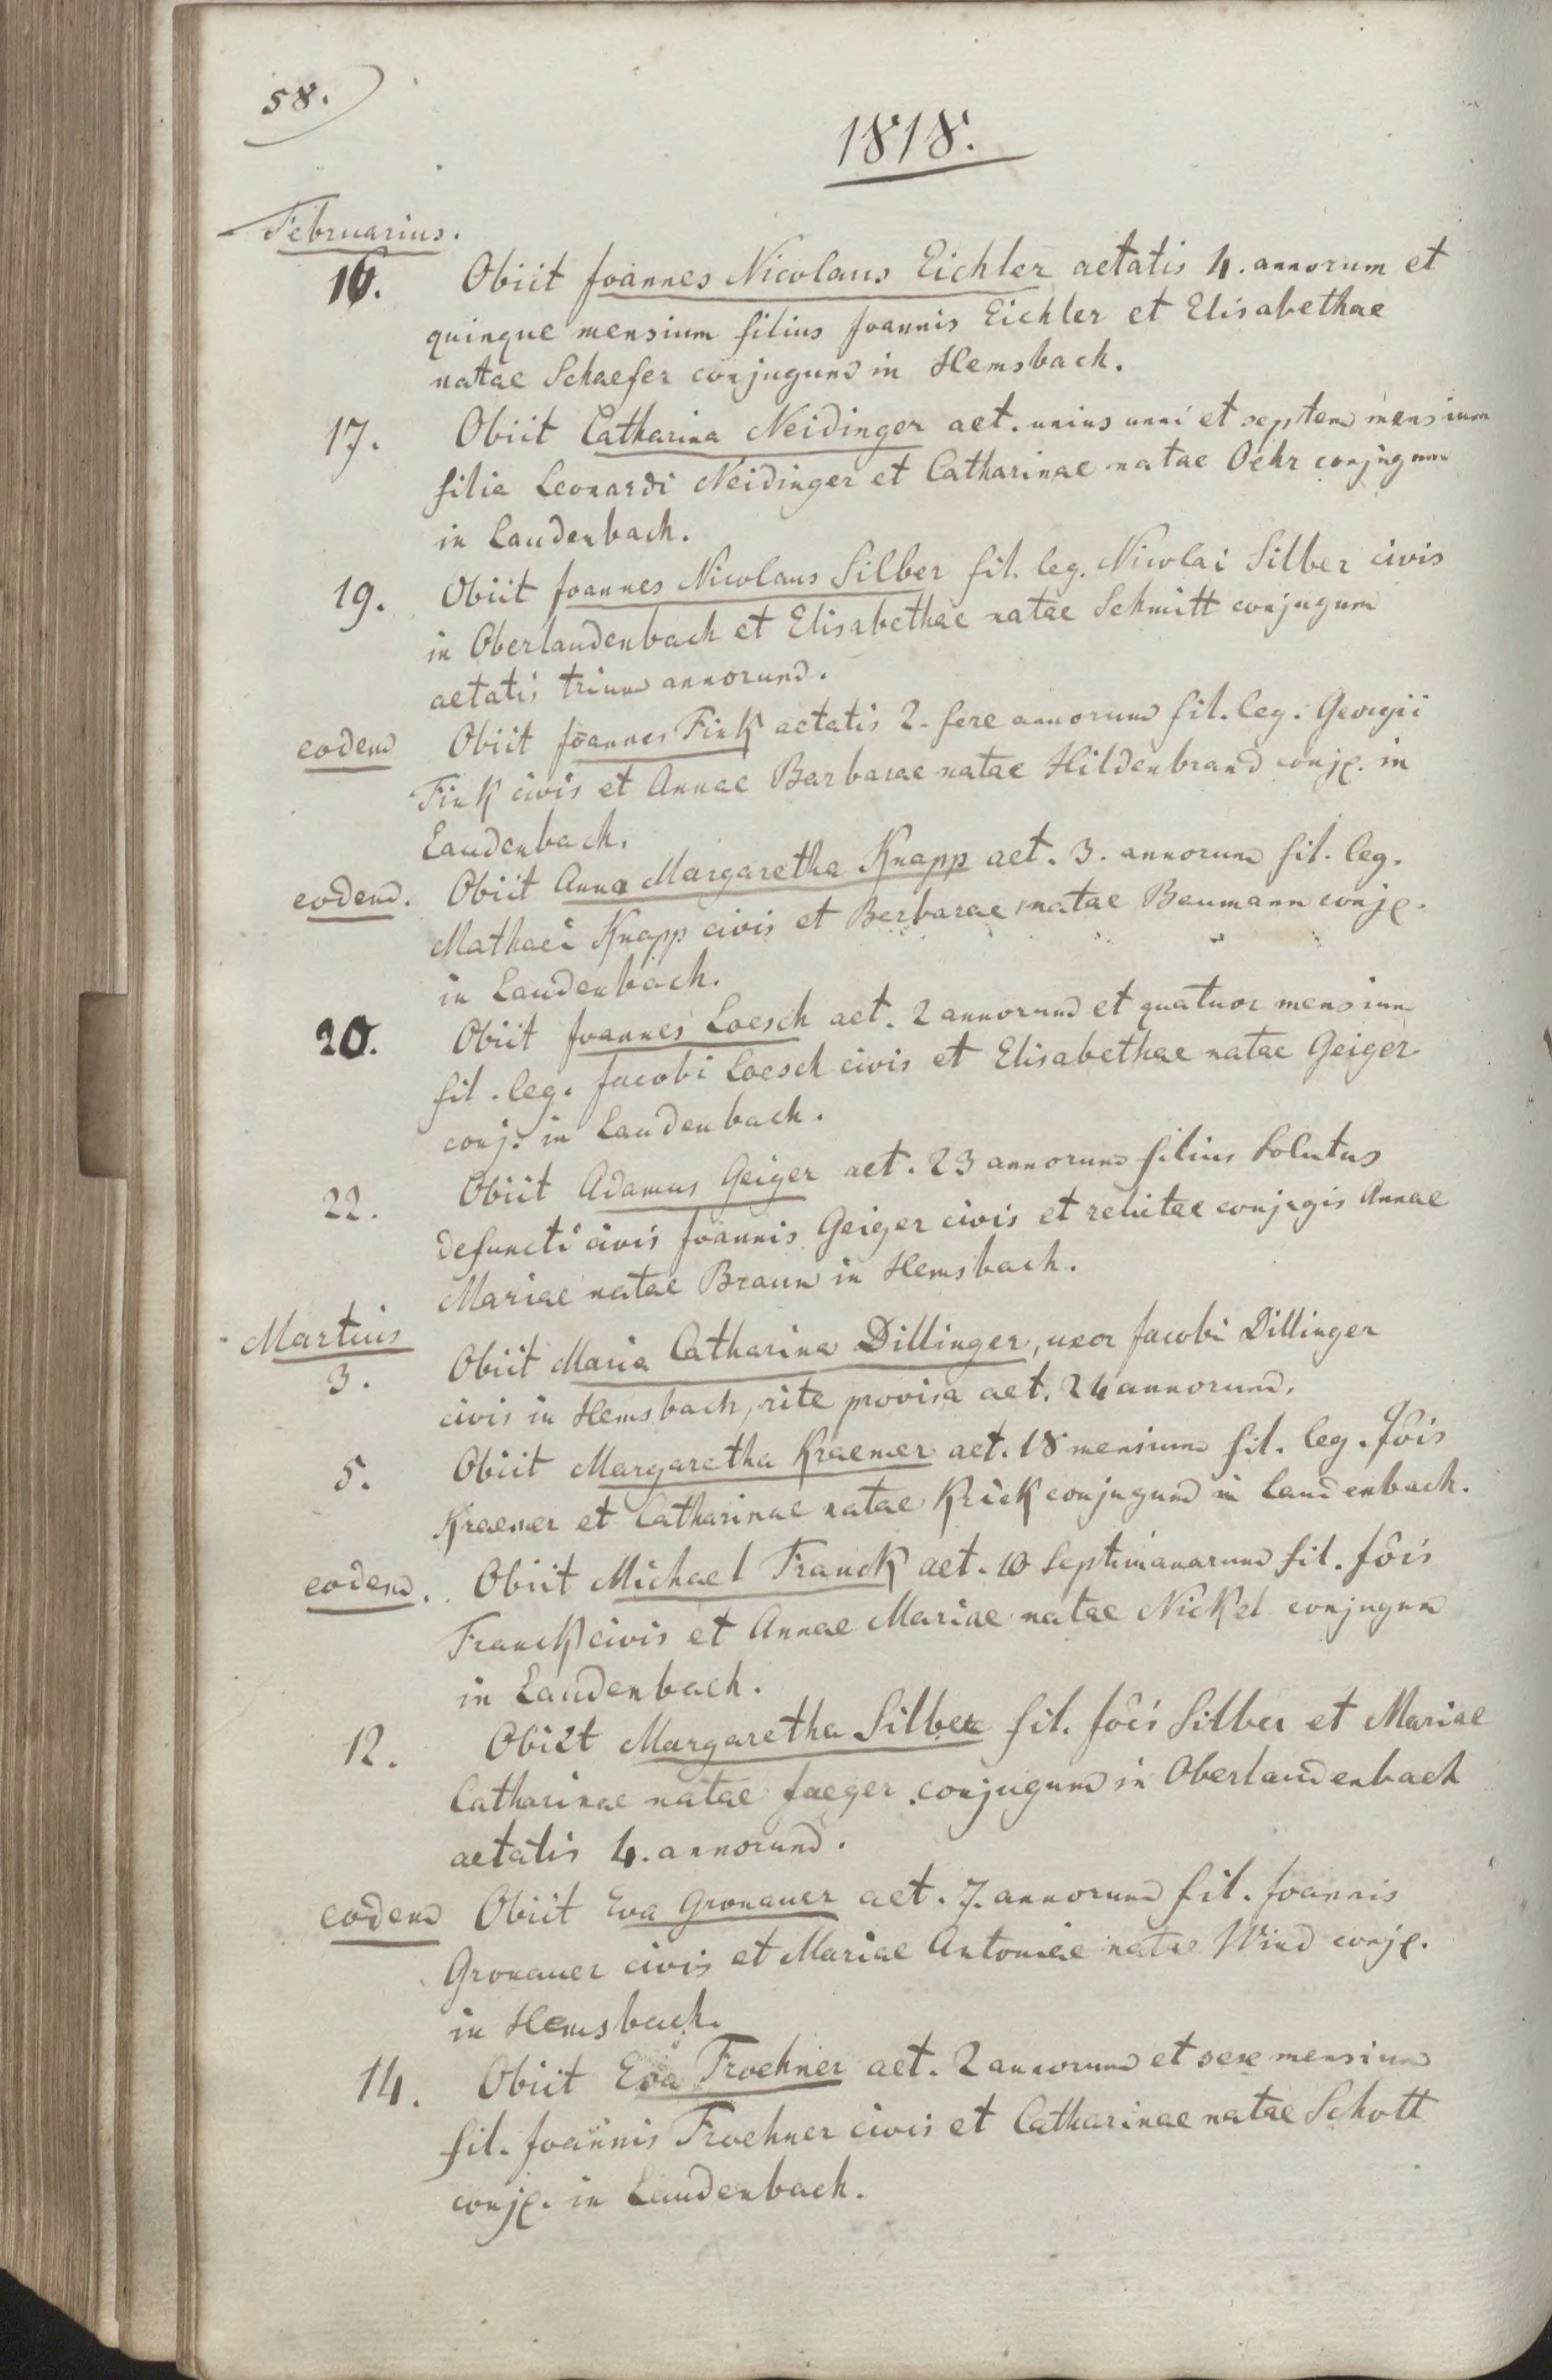 58.
1818.
Februarius.
16. Obiit Joannes Nicolaus Eichler aetatis 4. annorum et
quinque mensium filius Joannis Eichler et Elisabethae
natae Schaefer conjugum in Hemsbach.
17. Obiit Catharina Neidinger aet. unius anni et septem mensium
filia Leonardi Neidinger et Catharinae natae Oehr conjugum
in Laudenbach.
19. Obiit Joannes Nicolaus Silber fil. leg. Nicolai Silber civis
in Oberlaudenbach et Elisabethae natae Schmitt conjugum
aetatis trium annorum.
eodem Obiit Joannes Fink aetatis 2. fere annorum fil. leg. Georgii
Fink civis et Annae Barbarae natae Hildenbrand conj. in
Laudenbach.
eodem. Obiit Anna Margaretha Knapp aet. 3. annorum fil. leg.
Mathaei Knapp civis et Barbarae natae Baumann conj.
in Laudenbach.
20. Obiit Joannes Loesch aet. 2 annorum et quatuor mensium
fil. leg. Jacobi Loesch civis et Elisabethae natae Geiger
conj. in Laudenbach.
22. Obiit Adamus Geiger aet. 23 annorum filius solutus
defuncti civis Joannis Geiger civis et relictae conjugis Annae
Mariae natae Braun in Hemsbach.
Martius
3. Obiit Maria Catharina Dillinger, uxor Jacobi Dillinger
civis in Hemsbach, rite provisa aet. 24 annorum.
5. Obiit Margaretha Kraemer aet. 18 mensium fil. leg. Jôis
Kraemer et Catharinae natae Krick conjugum in Laudenbach.
eodem. Obiit Michael Franck aet. 10 septimanarum fil. Jôis
Franck civis et Annae Mariae natae Nickel conjugum
in Laudenbach.
12. Obiit Margaretha Silber fil. Jôis Silber et Mariae
Catharinae natae Jaeger conjugum in Oberlaudenbach
aetatis 4. annorum.
eodem Obiit Eva Gronauer aet. 7. annorum fil. Joannis
Gronauer civis et Mariae Antoniae natae Wind conj.
in Hemsbach.
14. Obiit Eva Froehner aet. 2 annorum et sex mensium
fil. Joannis Froehner civis et Catharinae natae Schott
conj. in Laudenbach.